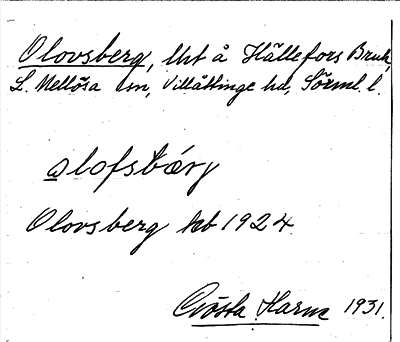 Olovsberg, lht å Hällefors Bruk,
L. Mellösa sn, Villåttinge hd, Sörml. l.
olofsbærj
Olovsberg kb 1924
Gösta Harm 1931.